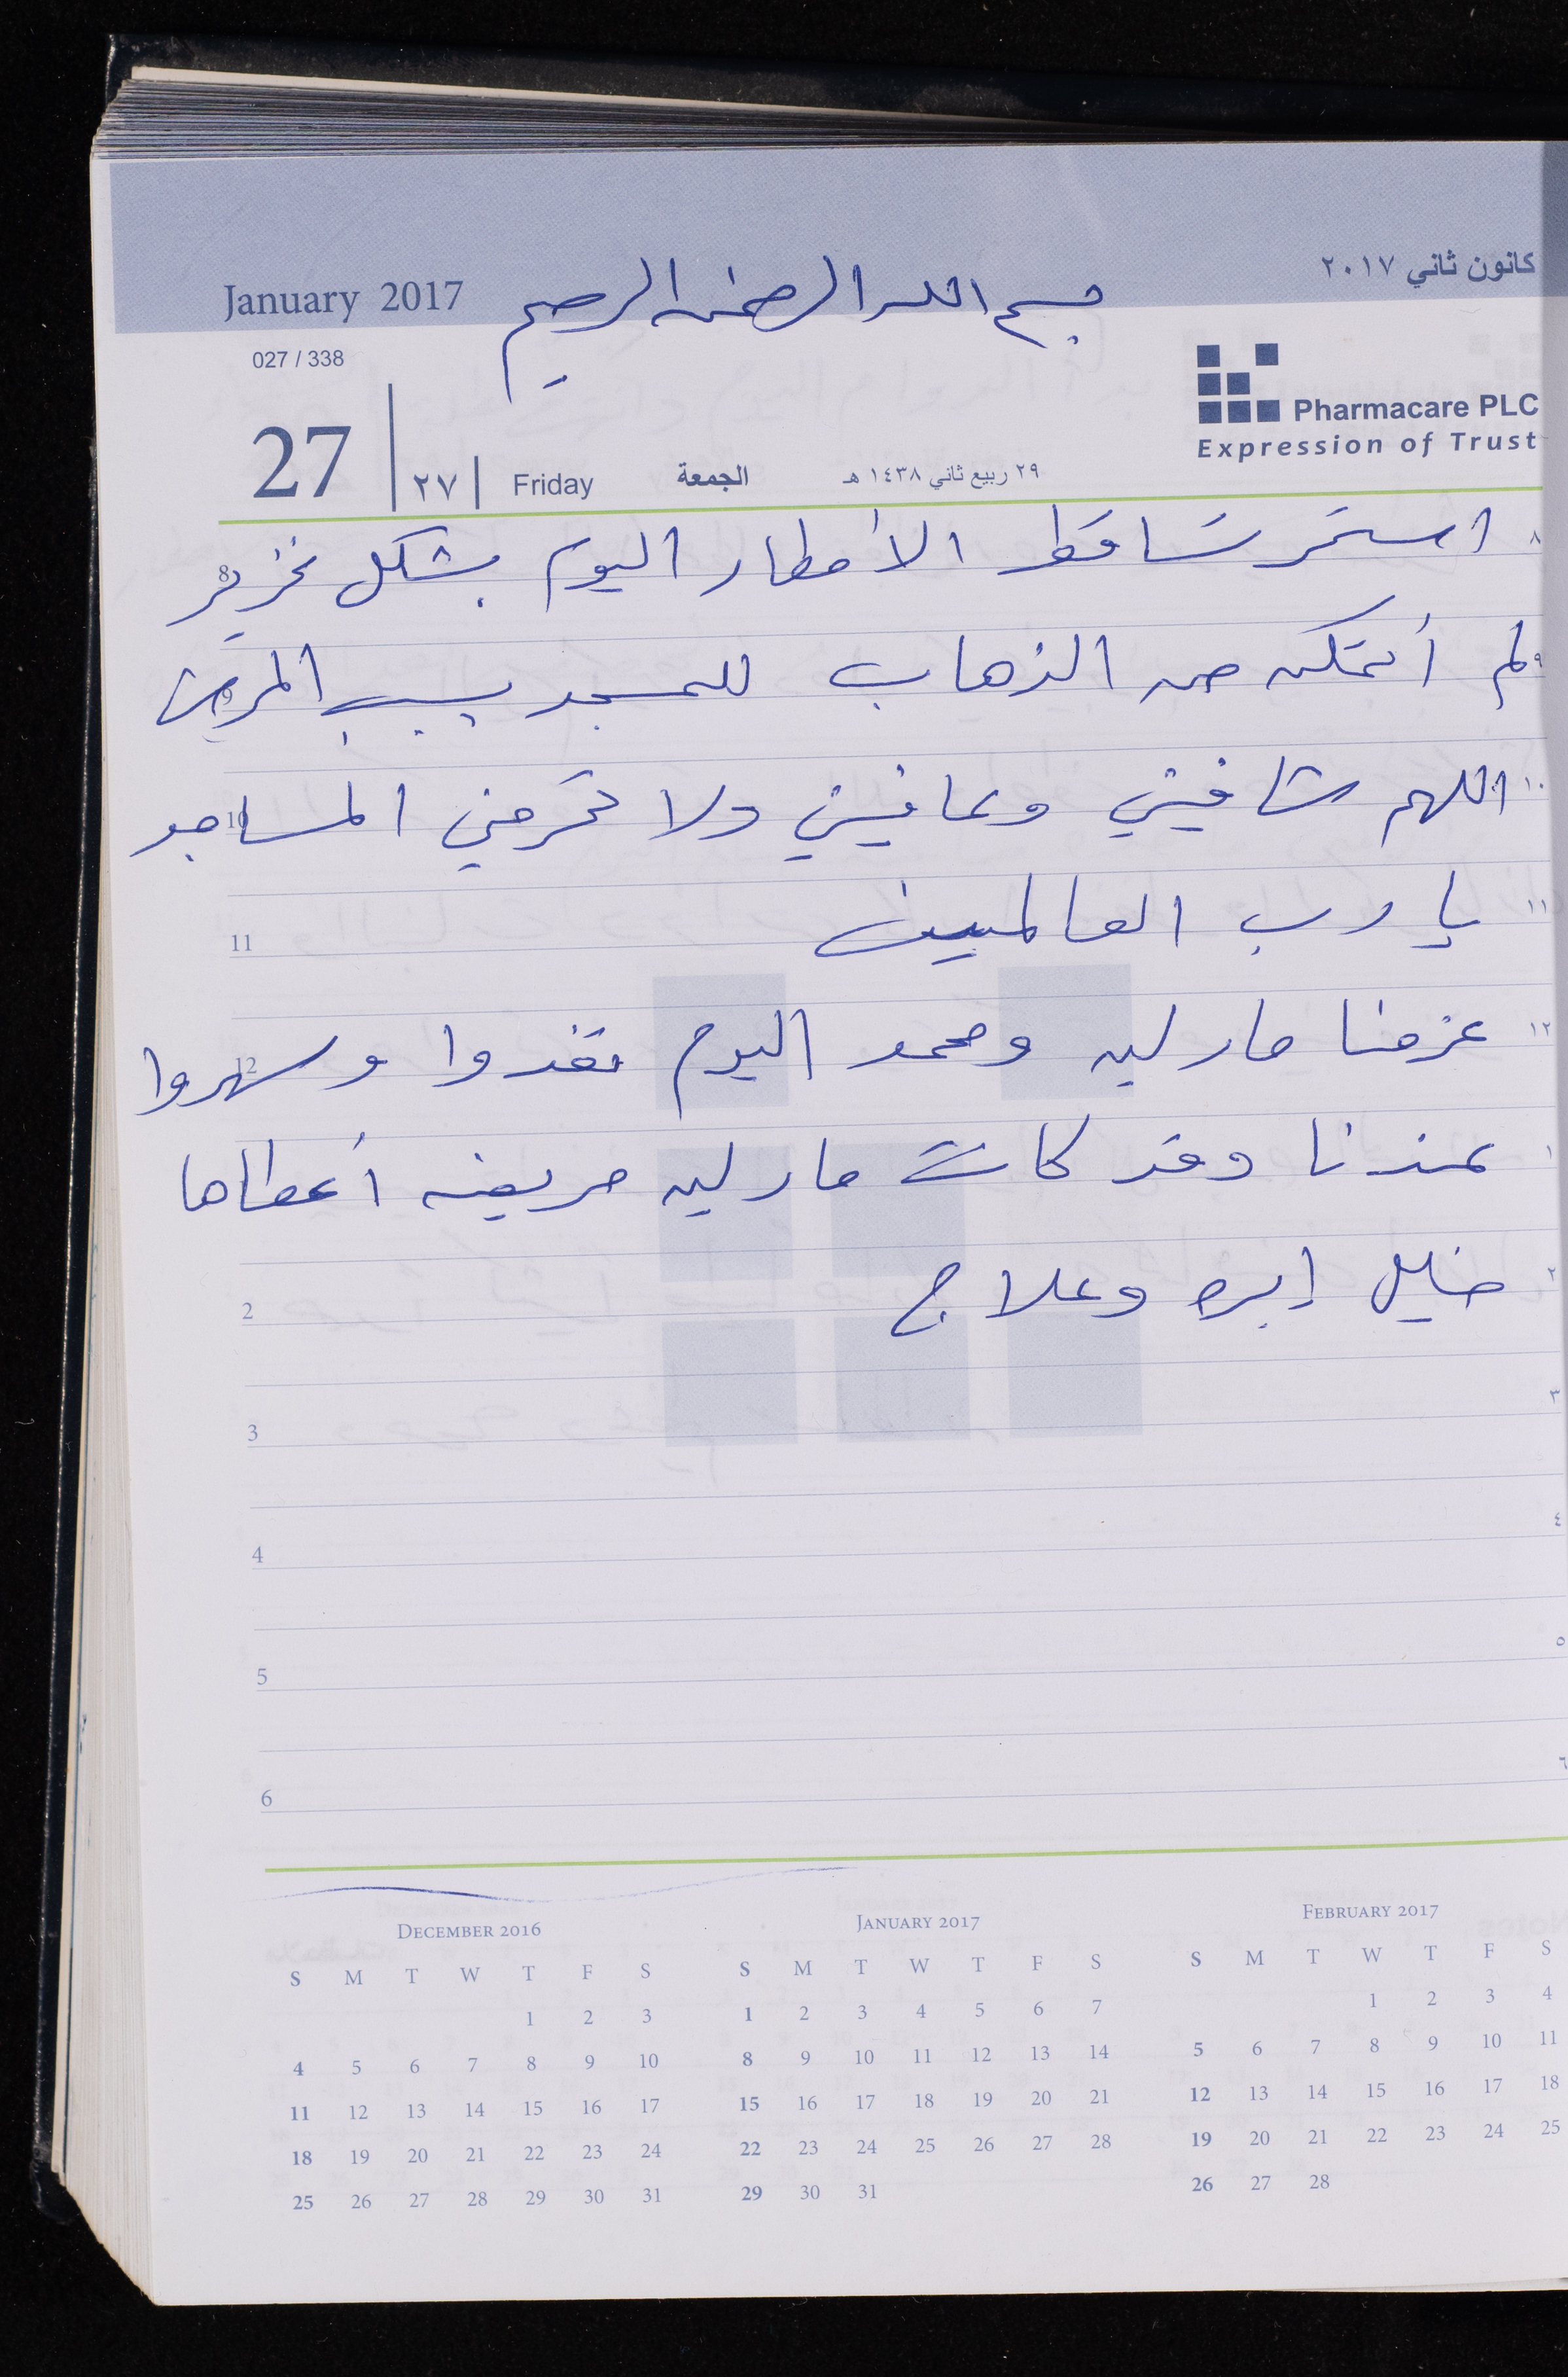 كانون ثاني ٢٠١٧
January 2017
بسم الله الرحمن الرحيم
027 / 338
Pharmacare PLC
Expression of Trust
27 ٢٧ Friday الجمعة ٢٩ ربيع ثاني ١٤٣٨ هـ
٨ استمر تساقط الأمطار اليوم بشكل غزير 8
٩ لم أتمكن من الذهاب للمسجد بسبب المرض 9
١٠ اللهم شافيني وعافيني ولا تحرمني المساجد 10
١١ يا رب العالمين 11
١٢ عزمنا مارلين ومحمد اليوم تغدوا وسهروا 12
١ عندنا وقد كانت مارلين مريضه أعطاها
٢ خليل إبره وعلاج 2
٣ 3
٤ 4
٥ 5
٦ 6
DECEMBER 2016
S M T W T F S
1 2 3
4 5 6 7 8 9 10
11 12 13 14 15 16 17
18 19 20 21 22 23 24
25 26 27 28 29 30 31
JANUARY 2017
S M T W T F S
1 2 3 4 5 6 7
8 9 10 11 12 13 14
15 16 17 18 19 20 21
22 23 24 25 26 27 28
29 30 31
FEBRUARY 2017
S M T W T F S
1 2 3 4
5 6 7 8 9 10 11
12 13 14 15 16 17 18
19 20 21 22 23 24 25
26 27 28